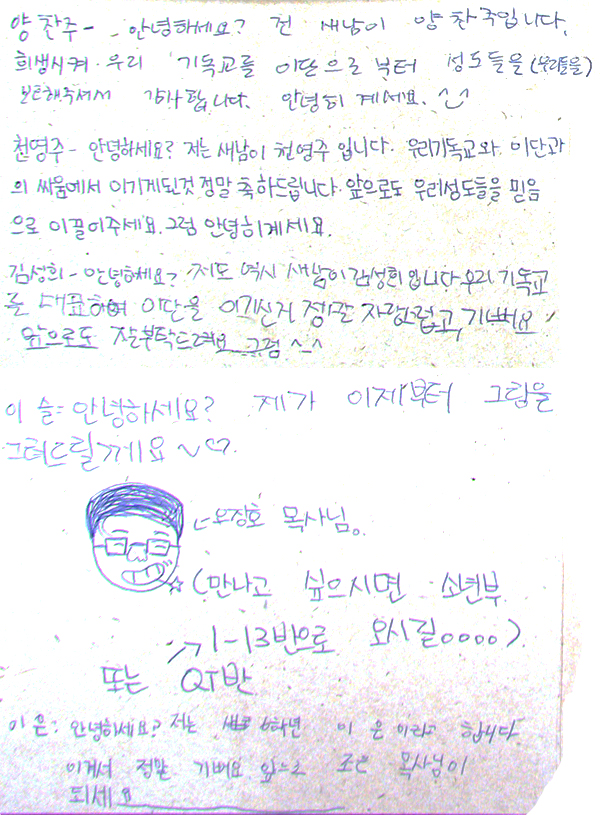 양찬주- 안녕하세요? 전 새남이 양찬주입니다.
희생시켜 우리 기독교를 이단으로부터 성도들을(우리들을)
보호해주셔서 감사합니다. 안녕히 계세요. ^_^
천영주- 안녕하세요? 저는 새남이 천영주 입니다. 우리기독교와 이단과
의 싸움에서 이기게된것 정말 축하드립니다. 앞으로도 우리성도들을 믿음
으로 이끌어주세요. 그럼 안녕히계세요.
김성희- 안녕하세요? 저도 역시 새남이 김성희 입니다. 우리 기독교
를 대표하여 이단을 이기신거 정말 자랑스럽고, 기뻐요
앞으로도 잘부탁드려요 그럼 ^_^
이 슬: 안녕하세요? 제가 이제부터 그림을
그려드릴께요 ~♡.
오정호 목사님.
☆(만나고 싶으시면 소년부
→1-13반으로 오시길....).
또는 QT반
이 은: 안녕하세요? 저는 6학년 이 은 이라고 합니다
이겨서 정말 기뻐요 앞으로 목사님이
되세요